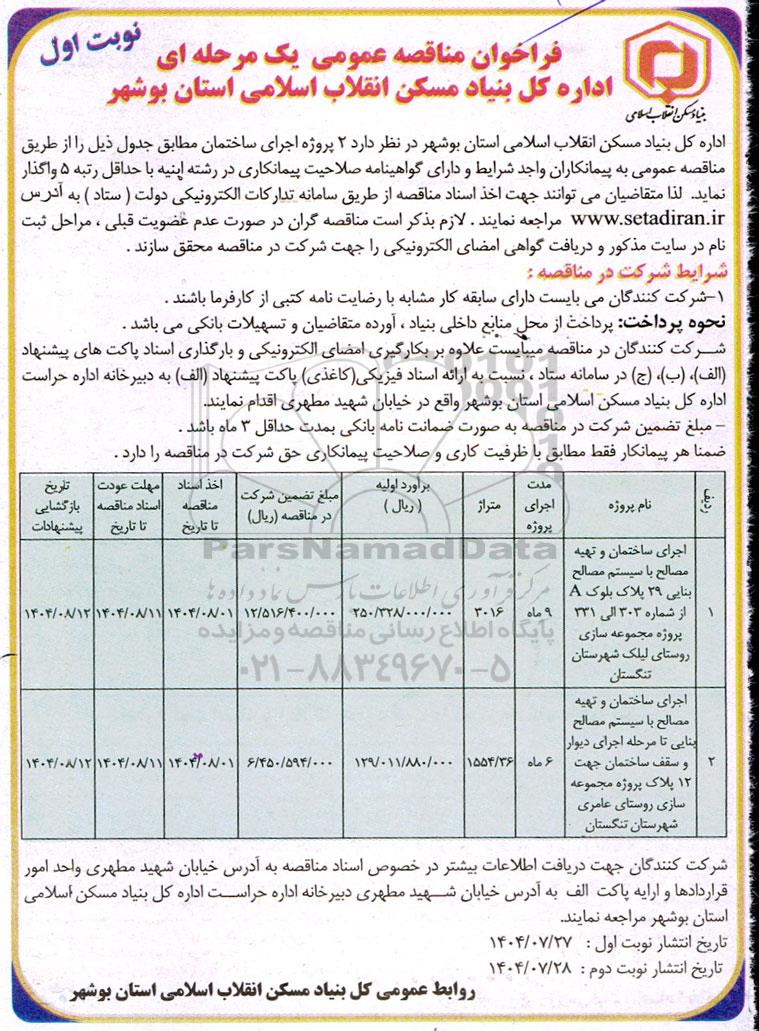 نوبت اول
فراخوان مناقصه عمومی یک مرحله ای
اداره کل بنیاد مسکن انقلاب اسلامی استان بوشهر
بنیاد مسکن انقلاب اسلامی
اداره کل بنیاد مسکن انقلاب اسلامی استان بوشهر در نظر دارد ۲ پروژه اجرای ساختمان مطابق جدول ذیل را از طریق
مناقصه عمومی به پیمانکاران واجد شرایط و دارای گواهینامه صلاحیت پیمانکاری در رشته ابنیه با حداقل رتبه ۵ واگذار
نماید. لذا متقاضیان می توانند جهت اخذ اسناد مناقصه از طریق سامانه تدارکات الکترونیکی دولت ( ستاد ) به آدرس
www.setadiran.ir مراجعه نمایند . لازم بذکر است مناقصه گران در صورت عدم عضویت قبلی ، مراحل ثبت
نام در سایت مذکور و دریافت گواهی امضای الکترونیکی را جهت شرکت در مناقصه محقق سازند .
شرایط شرکت در مناقصه :
۱-شرکت کنندگان می بایست دارای سابقه کار مشابه با رضایت نامه کتبی از کارفرما باشند .
نحوه پرداخت: پرداخت از محل منابع داخلی بنیاد ، آورده متقاضیان و تسهیلات بانکی می باشد .
شرکت کنندگان در مناقصه میبایست علاوه بر بکارگیری امضای الکترونیکی و بارگذاری اسناد پاکت های پیشنهاد
(الف)، (ب)، (ج) در سامانه ستاد ، نسبت به ارائه اسناد فیزیکی(کاغذی) پاکت پیشنهاد (الف) به دبیرخانه اداره حراست
اداره کل بنیاد مسکن اسلامی استان بوشهر واقع در خیابان شهید مطهری اقدام نمایند.
- مبلغ تضمین شرکت در مناقصه به صورت ضمانت نامه بانکی بمدت حداقل ۳ ماه باشد .
ضمنا هر پیمانکار فقط مطابق با ظرفیت کاری و صلاحیت پیمانکاری حق شرکت در مناقصه را دارد .
ردیف
نام پروژه
مدت
اجرای
پروژه
متراژ
برآورد اولیه
( ریال )
مبلغ تضمین شرکت
در مناقصه (ریال)
اخذ اسناد
مناقصه
تا تاریخ
مهلت عودت
اسناد مناقصه
تا تاریخ
تاریخ
بازگشایی
پیشنهادات
۱
اجرای ساختمان و تهیه
مصالح با سیستم مصالح
بنایی ۲۹ پلاک بلوک A
از شماره ۳۰۳ الی ۳۳۱
پروژه مجموعه سازی
روستای لیلک شهرستان
تنگستان
۹ ماه
۳۰۱۶
۲۵۰/۳۲۸/۰۰۰/۰۰۰
۱۲/۵۱۶/۴۰۰/۰۰۰
۱۴۰۴/۰۸/۰۱
۱۴۰۴/۰۸/۱۱
۱۴۰۴/۰۸/۱۲
۲
اجرای ساختمان و تهیه
مصالح با سیستم مصالح
بنایی تا مرحله اجرای دیوار
و سقف ساختمان جهت
۱۲ پلاک پروژه مجموعه
سازی روستای عامری
شهرستان تنگستان
۶ ماه
۱۵۵۴/۳۶
۱۲۹/۰۱۱/۸۸۰/۰۰۰
۶/۴۵۰/۵۹۴/۰۰۰
۱۴۰۴/۰۸/۰۱
۱۴۰۴/۰۸/۱۱
۱۴۰۴/۰۸/۱۲
ParsNamadData
مرکز فرآوری اطلاعات پارس نماد داده ها
پایگاه اطلاع رسانی مناقصه و مزایده
۰۲۱-۸۸۳۴۹۶۷۰-۵
شرکت کنندگان جهت دریافت اطلاعات بیشتر در خصوص اسناد مناقصه به آدرس خیابان شهید مطهری واحد امور
قراردادها و ارایه پاکت الف به آدرس خیابان شهید مطهری دبیرخانه اداره حراست اداره کل بنیاد مسکن اسلامی
استان بوشهر مراجعه نمایند.
تاریخ انتشار نوبت اول : ۱۴۰۴/۰۷/۲۷
تاریخ انتشار نوبت دوم : ۱۴۰۴/۰۷/۲۸
روابط عمومی کل بنیاد مسکن انقلاب اسلامی استان بوشهر